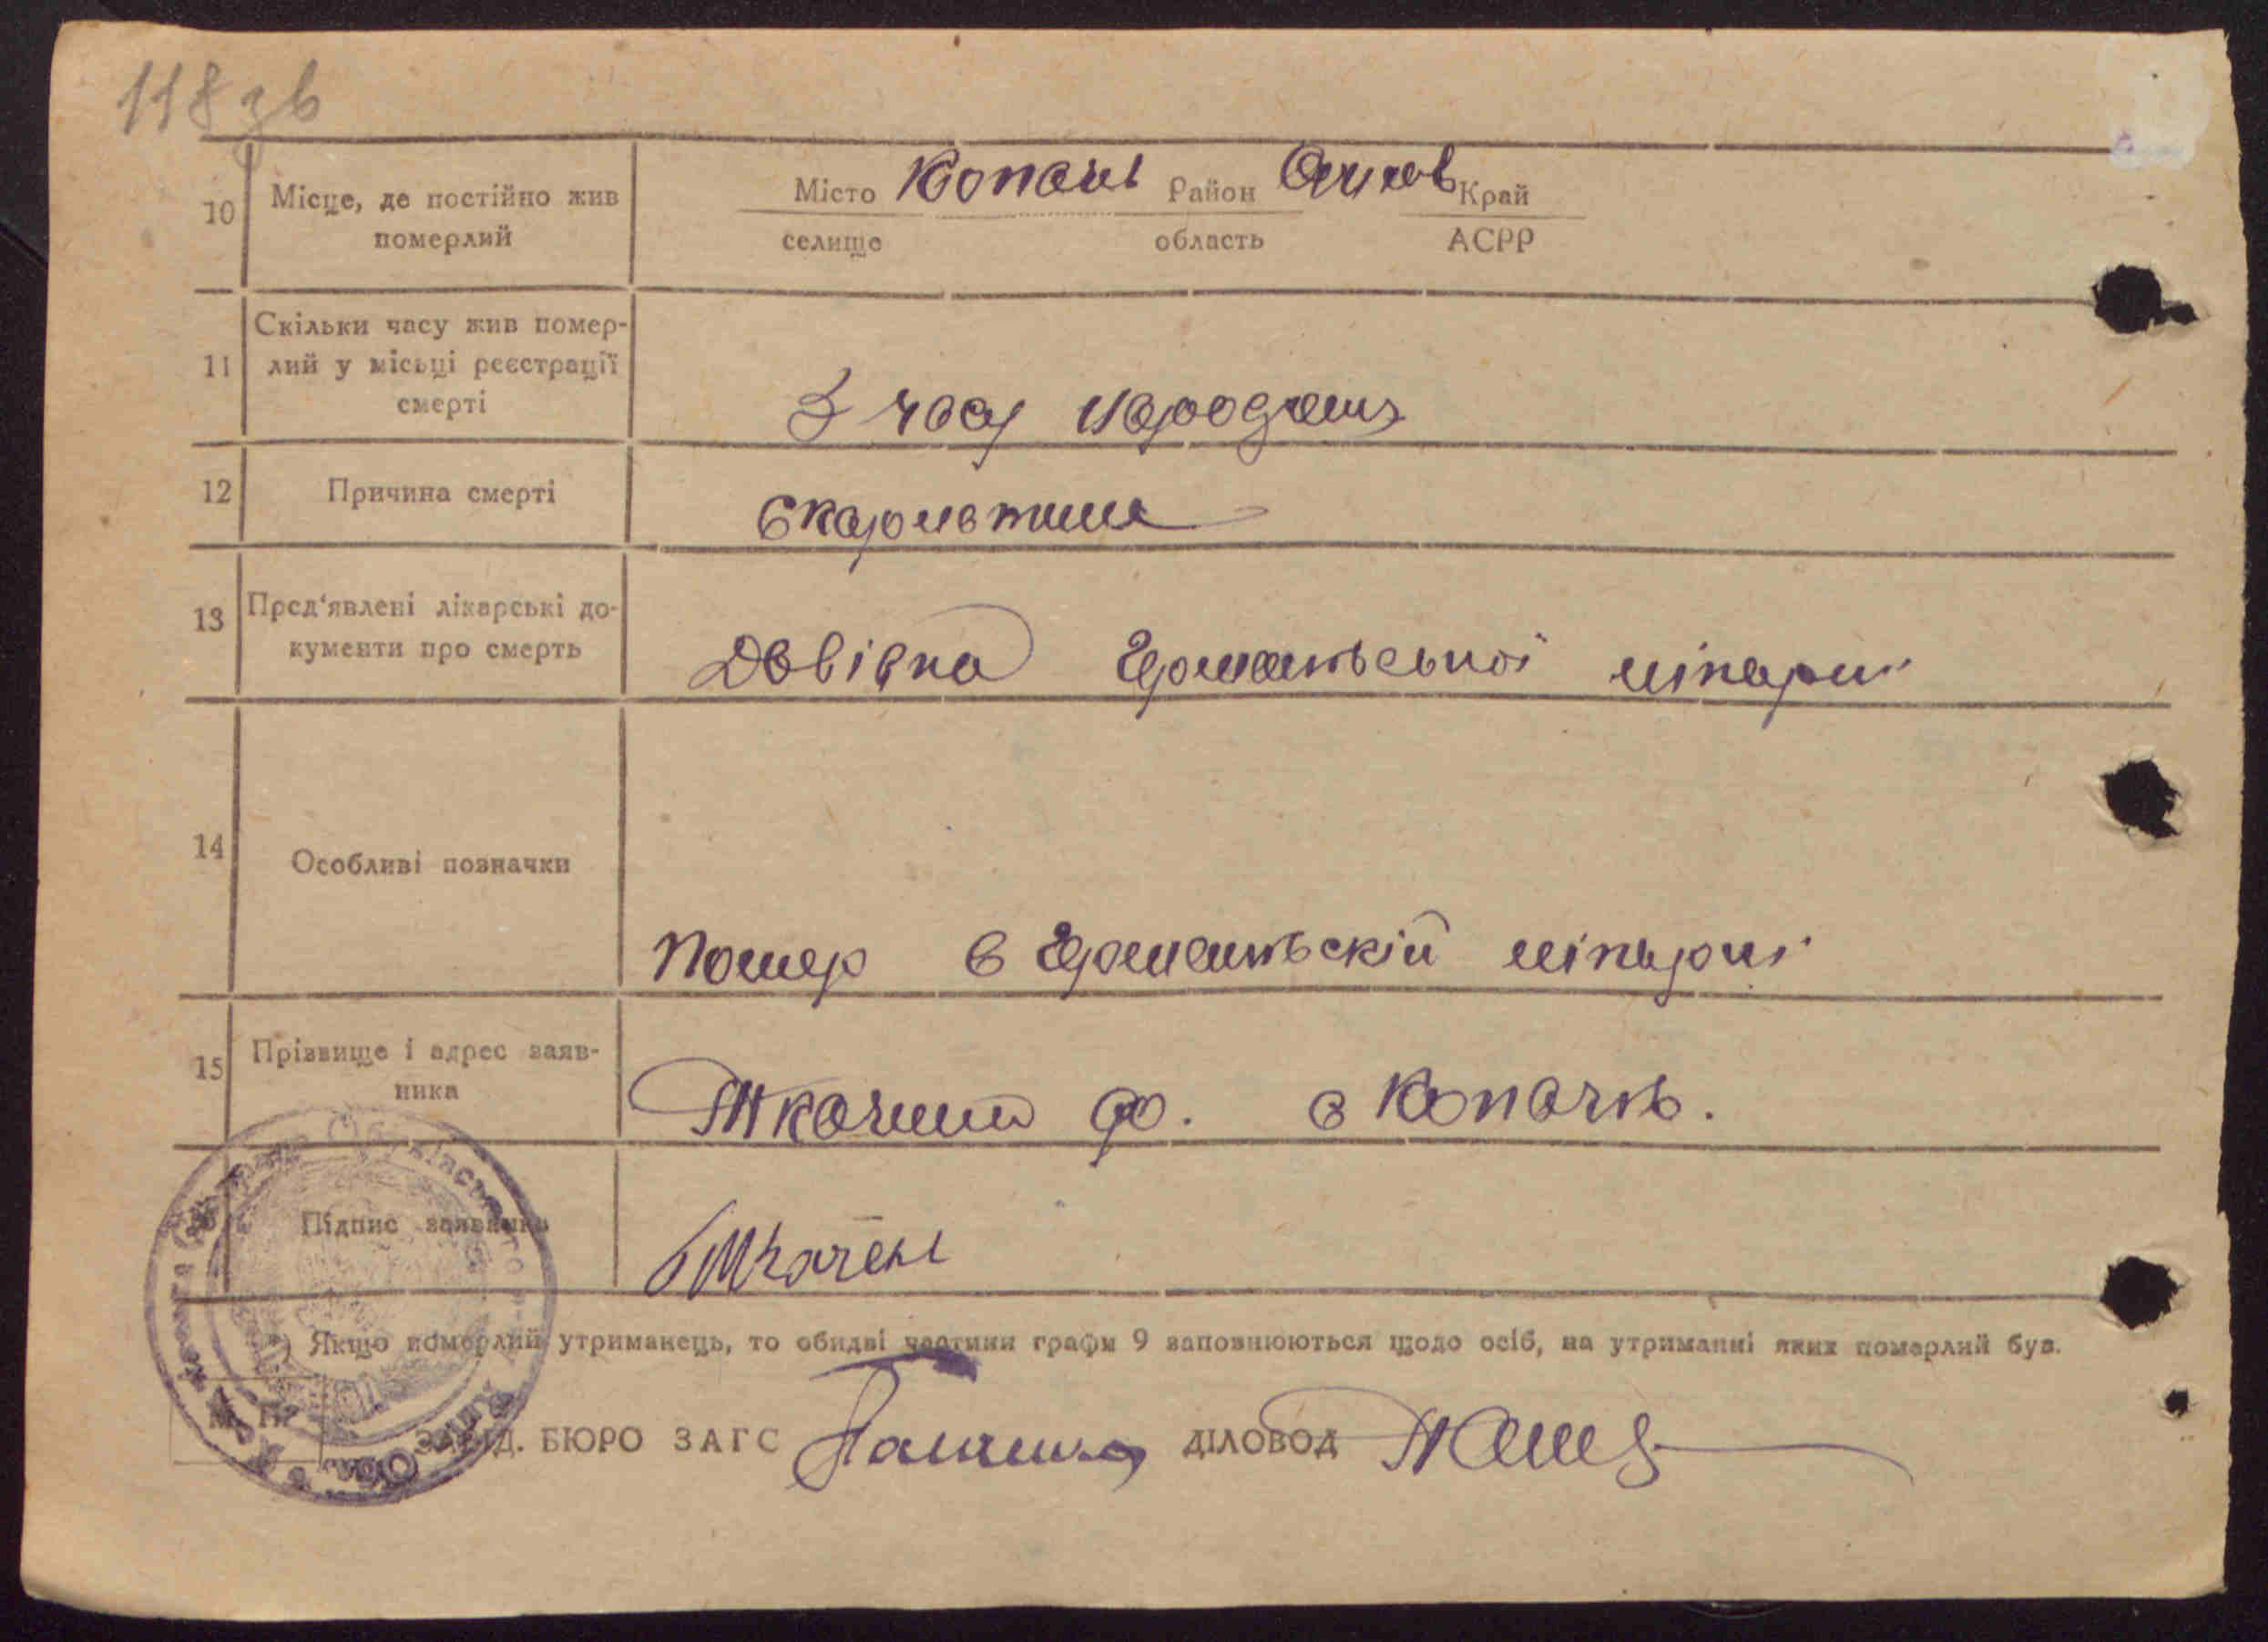 118 зв
10 Місце, де постійно жив померлий
Місто Копачі Район Край
селище область АСРР
11 Скільки часу жив помер-
лий у місьці реєстрації
смерті
З часу народженя
12 Причина смерті
Скарлатина
13 Пред'явлені лікарські до-
кументи про смерть
Довідка Германівської лікарні
14 Особливі позначки
Помер в Германівскій лікарні
15 Прізвище і адрес заяв-
ника
с Копачів.
Підпис заявника
Якщо померлий утриманець, то обидві частини графи 9 заповнюються щодо осіб, на утриманні яких померлий був.
М. П.
ЗАВІД. БЮРО ЗАГС ДІЛОВОД